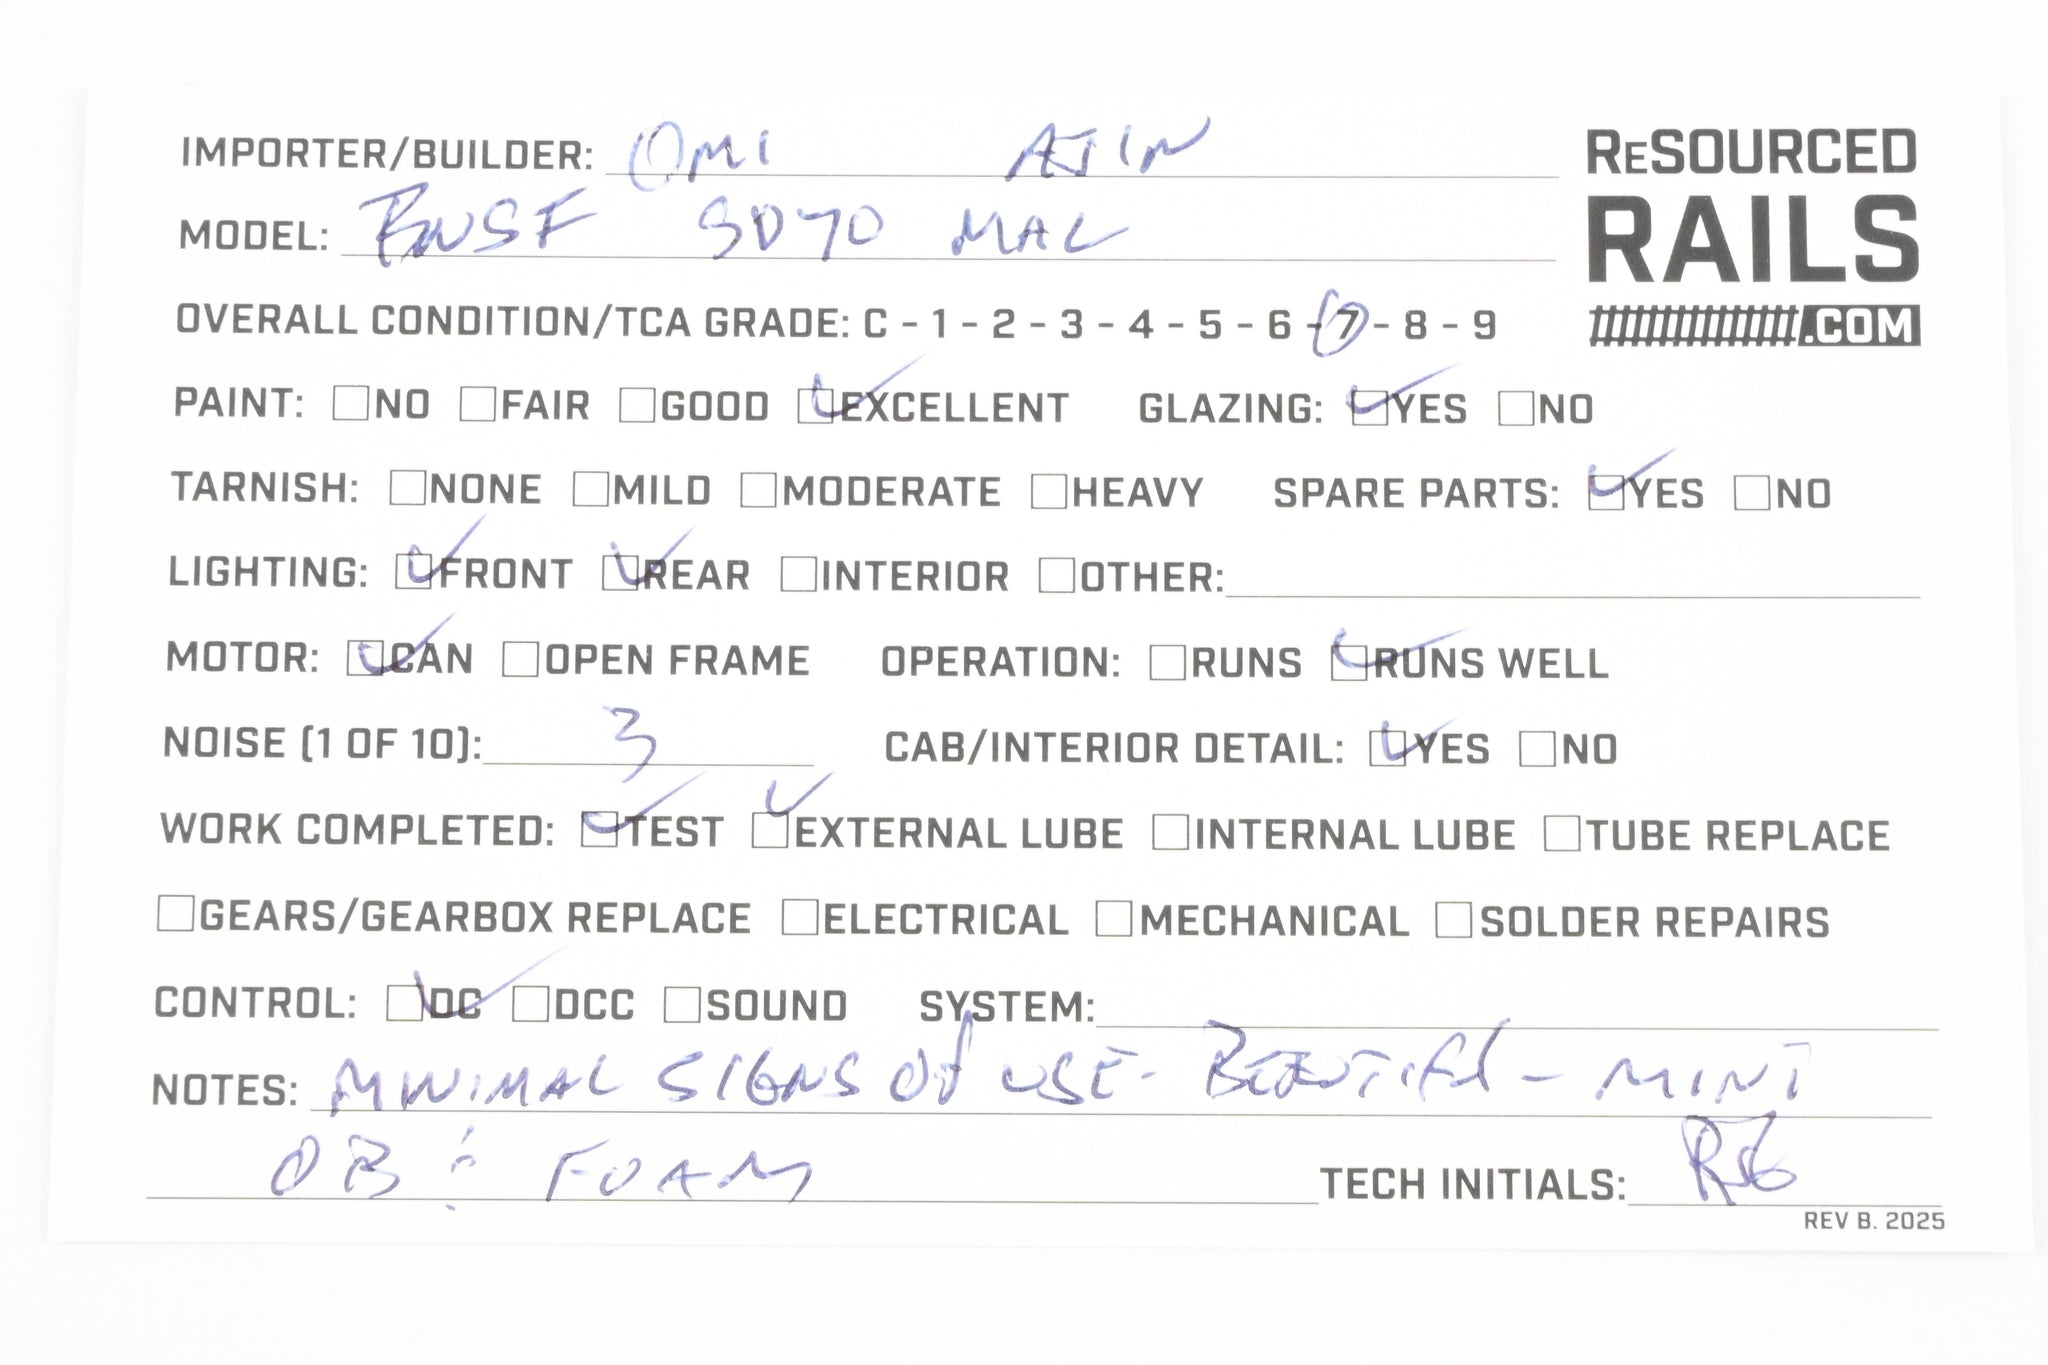 IMPORTER/BUILDER: OMI AJIN
MODEL: BNSF SD70 MAC
RESOURCED
RAILS
.COM
OVERALL CONDITION/TCA GRADE: C - 1 - 2 - 3 - 4 - 5 - 6 - 7 - 8 - 9
PAINT: ☐NO ☐FAIR ☐GOOD ☑EXCELLENT GLAZING: ☑YES ☐NO
TARNISH: ☐NONE ☐MILD ☐MODERATE ☐HEAVY SPARE PARTS: ☑YES ☐NO
LIGHTING: ☑FRONT ☑REAR ☐INTERIOR ☐OTHER:
MOTOR: ☑CAN ☐OPEN FRAME OPERATION: ☐RUNS ☑RUNS WELL
NOISE (1 OF 10): 3 CAB/INTERIOR DETAIL: ☑YES ☐NO
WORK COMPLETED: ☑TEST ☑EXTERNAL LUBE ☐INTERNAL LUBE ☐TUBE REPLACE
☐GEARS/GEARBOX REPLACE ☐ELECTRICAL ☐MECHANICAL ☐SOLDER REPAIRS
CONTROL: ☑DC ☐DCC ☐SOUND SYSTEM:
NOTES: MINIMAL SIGNS OF USE - BEAUTIFUL - MINT
OB & FOAM TECH INITIALS:
REV B. 2025